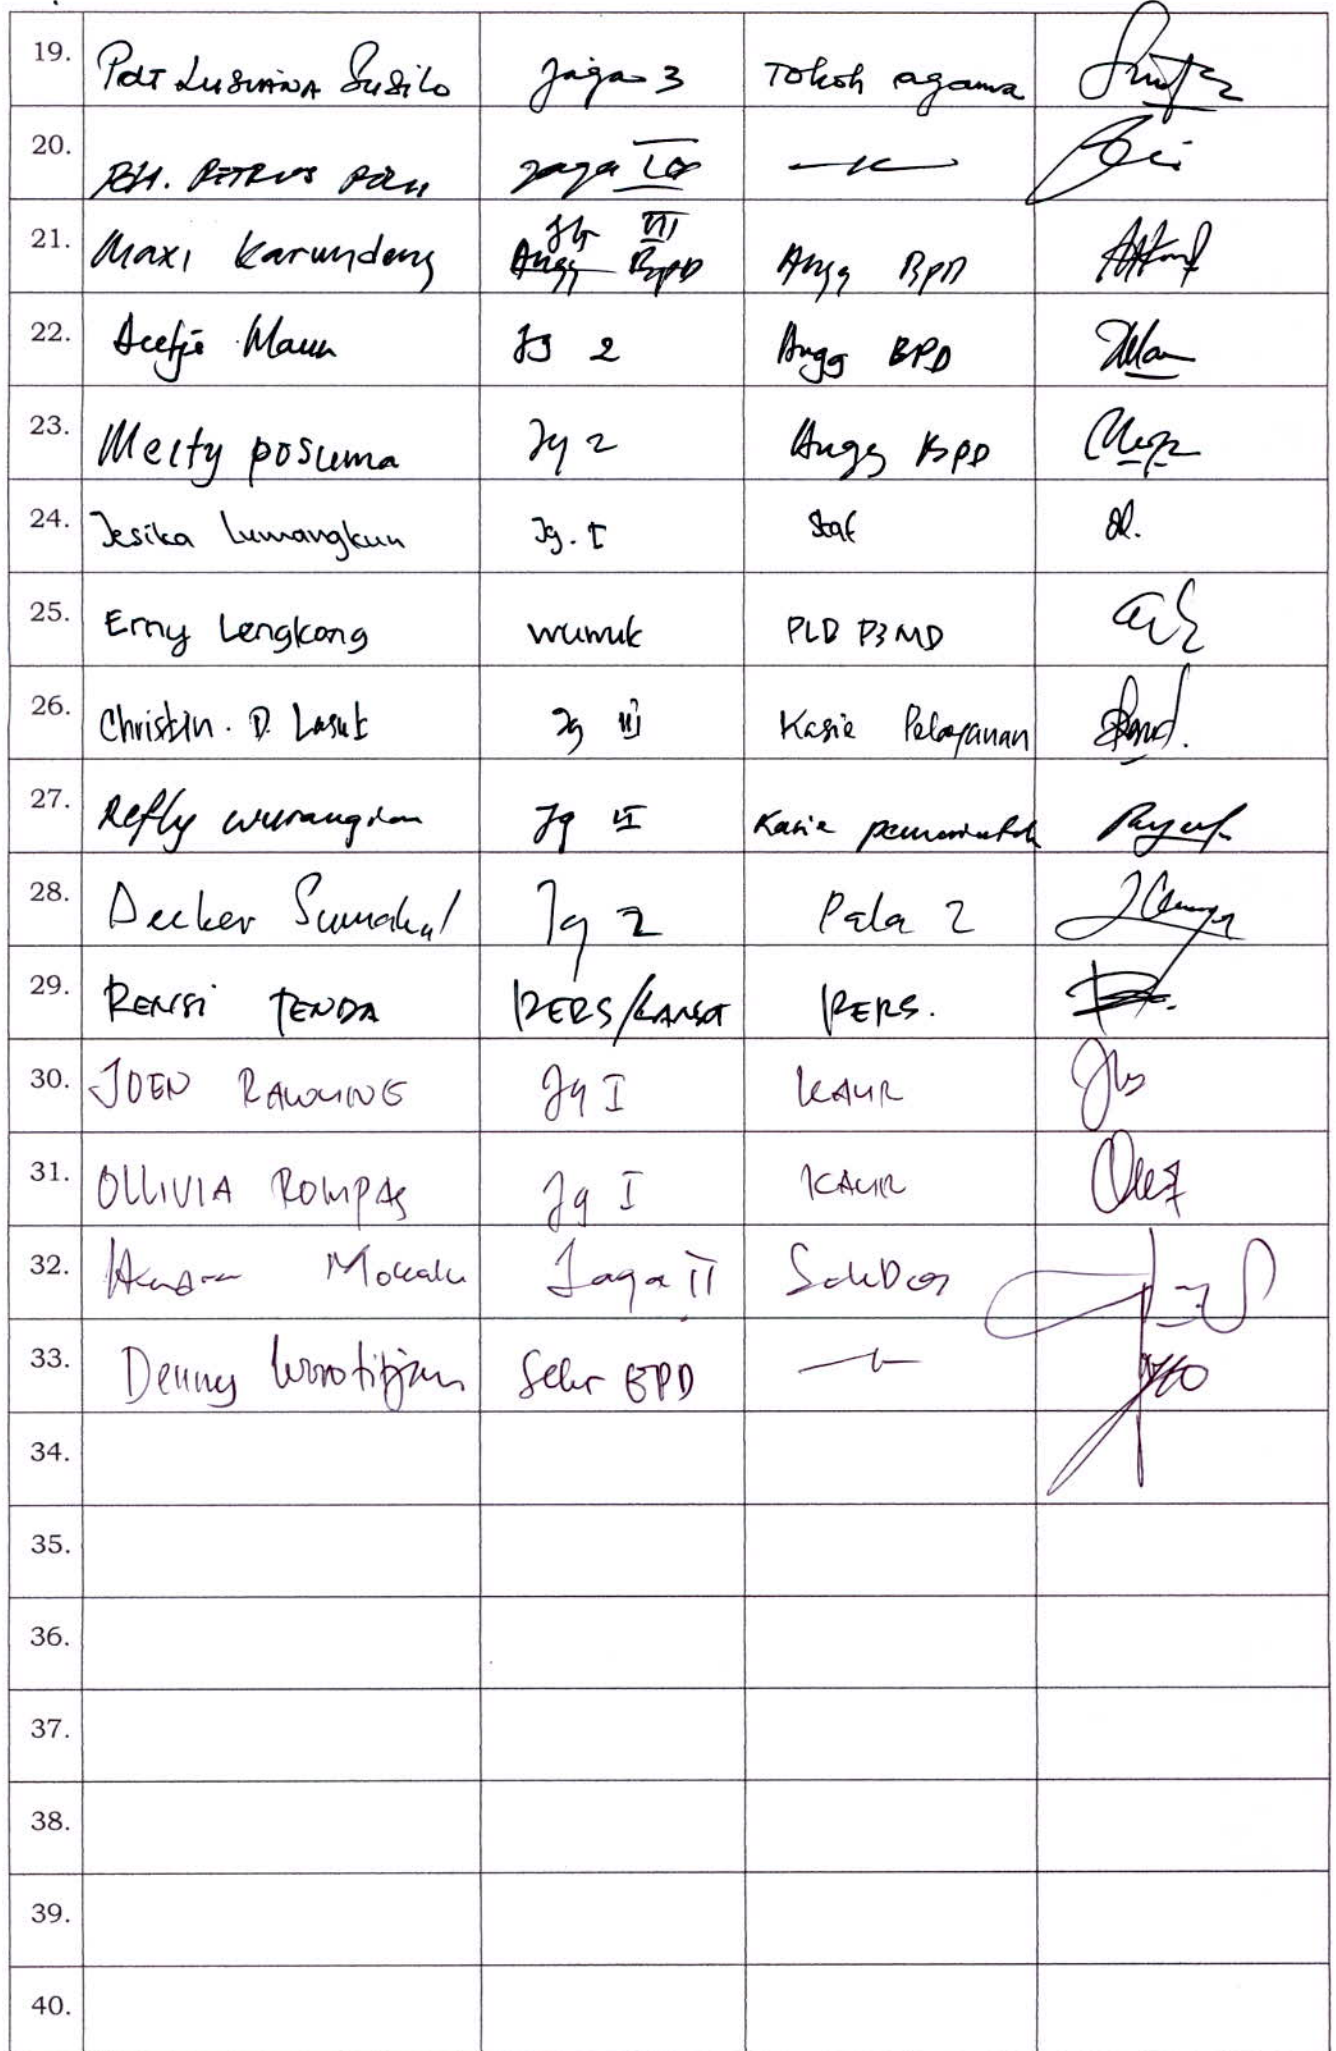 19. Pdt Lusiana Susilo Jaga 3 Tokoh agama
20. PETRUS jaga
21. Maxi Karundeng Jg III Angg BPD Angg BPD
22. Jg 2 Angg BPD
23. Meity posuma Jg 2 Angg BPD
24. Jesika Lumangkun Jg. I Staf
25. Erny Lengkong wuwuk PLD P3MD
26. Christin. D. Lasut Jg III Kasie Pelayanan
27. Refly wurangian Jg II Kasie pemerintah
28. Decker Sumakul Jg 2 Pala 2
29. RENSI TENDA PERS/ PERS.
30. JOEN RAWUNG Jg I KAUR
31. OLLIVIA ROMPAS Jg I KAUR
32. Jaga II
33. Denny Sekr BPD
34.
35.
36.
37.
38.
39.
40.